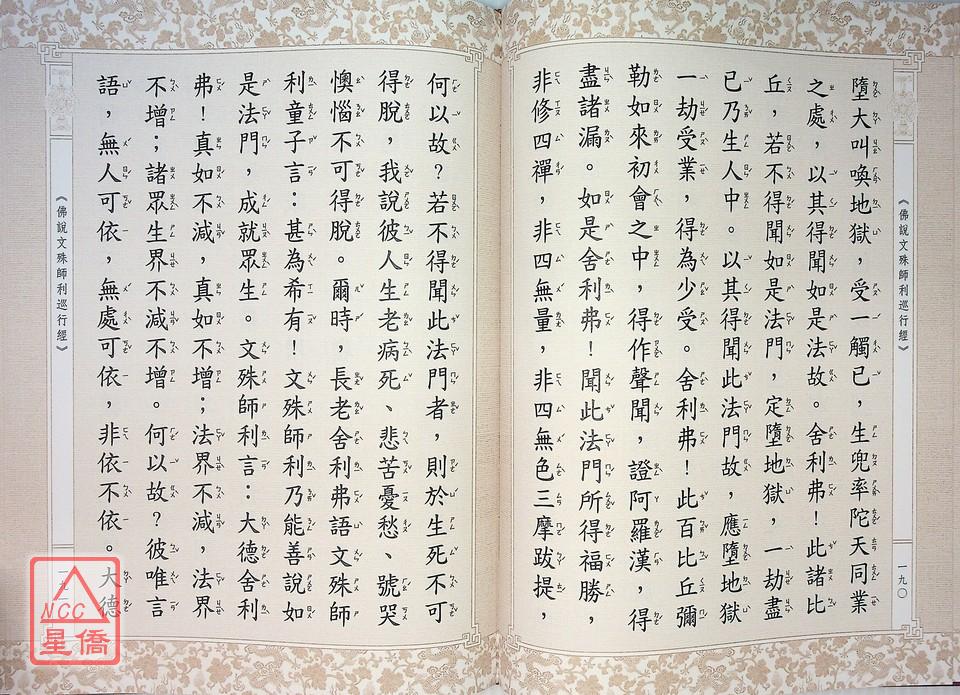 墮大叫喚地獄，受一觸已，生兜率陀天同業
之處，以其得聞如是法故。舍利弗！此諸比
丘，若不得聞如是法門，定墮地獄，一劫盡
已乃生人中。以其得聞此法門故，應墮地獄
一劫受業，得為少受。舍利弗！此百比丘彌
勒如來初會之中，得作聲聞，證阿羅漢，得
盡諸漏。如是舍利弗！聞此法門所得福勝，
非修四禪，非四無量，非四無色三摩跋提，
《佛說文殊師利巡行經》
一九〇
何以故？若不得聞此法門者，則於生死不可
得脫，我說彼人生老病死、悲苦憂愁、號哭
懊惱不可得脫。爾時，長老舍利弗語文殊師
利童子言：甚為希有！文殊師利乃能善說如
是法門，成就眾生。文殊師利言：大德舍利
弗！真如不減，真如不增；法界不減，法界
不增；諸眾生界不減不增。何以故？彼唯言
語，無人可依，無處可依，非依不依。大德
《佛說文殊師利巡行經》
一九
NCC
星僑